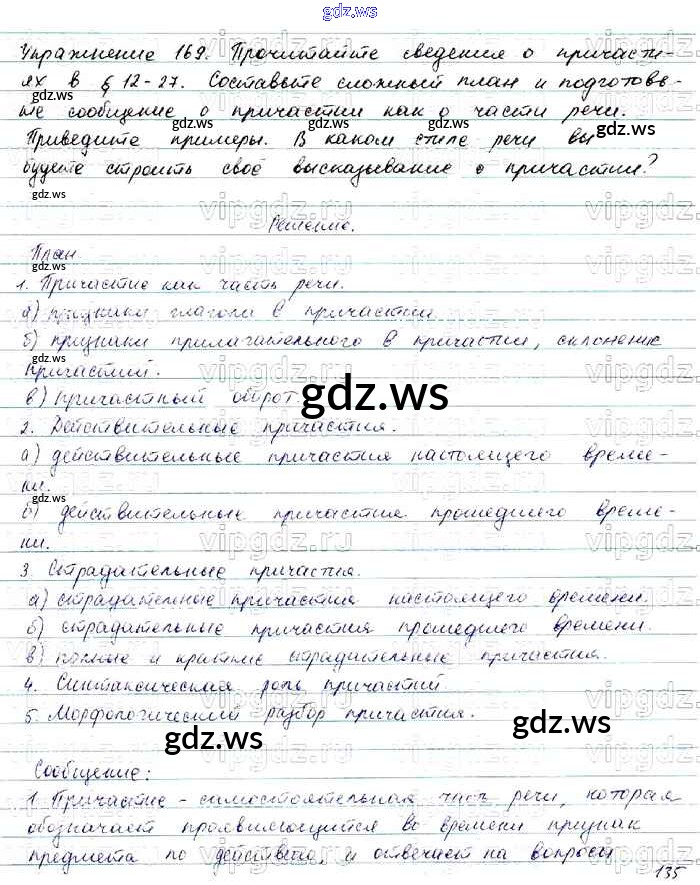 gdz.ws
Упражнение 169. Прочитайте сведения о причасти-
ях в § 12-27. Составьте сложный план и подготовь-
те сообщение о причастии как о части речи.
Приведите примеры. В каком стиле речи вы
будете строить своё высказывание о причастии?
Решение.
План
1. Причастие как часть речи.
а) признаки глагола в причастии
б) признаки прилагательного в причастии, склонение
причастий.
в) причастный оборот.
2. Действительные причастия.
а) действительные причастия настоящего време-
ни.
б) действительные причастия прошедшего време-
ни.
3. Страдательные причастия.
а) страдательные причастия настоящего времени.
б) страдательные причастия прошедшего времени.
в) полные и краткие страдательные причастия.
4. Синтаксическая роль причастий
5. Морфологический разбор причастия.
Сообщение:
1. Причастие - самостоятельная часть речи, которая
обозначает проявляющийся во времени признак
предмета по действию, и отвечает на вопросы
135